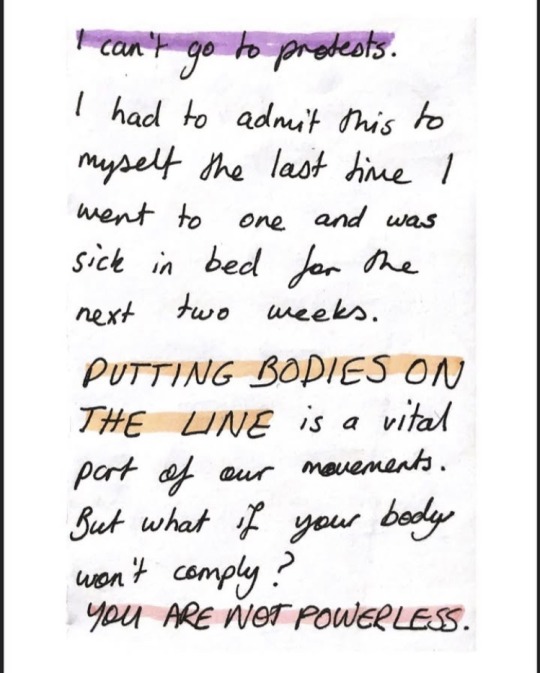 I can't go to protests.
I had to admit this to
myself the last time I
went to one and was
sick in bed for the
next two weeks.
PUTTING BODIES ON
THE LINE is a vital
part of our movements.
But what if your body
won't comply?
YOU ARE NOT POWERLESS.